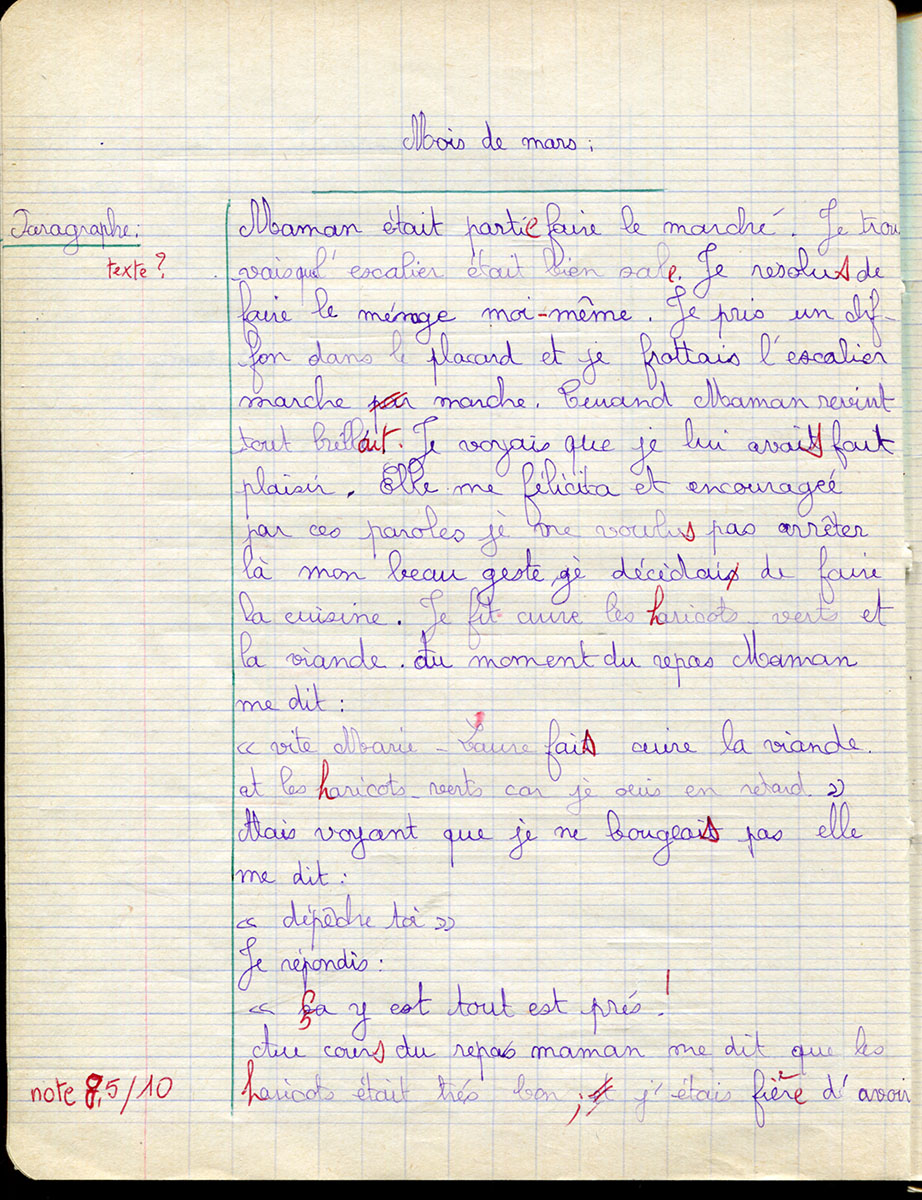 Mois de mars :
Paragraphe :
texte ?
Maman était partie faire le marché. Je trou
vais qu l'escalier était bien sale. Je resolus de
faire le ménage moi-même. Je pris un chif-
fon dans le placard et je frottais l'escalier
marche par marche. Quand Maman revint
tout brillait. Je voyais que je lui avais fait
plaisir. Elle me félicita et encourageé
par ces paroles je ne voulus pas arrêter
là mon beau geste, je décidai de faire
la cuisine. Je fit cuire les haricots verts et
la viande. Au moment du repas Maman
me dit :
« vite Marie-Laure fais cuire la viande.
et les haricots-verts car je suis en retard. »
Mais voyant que je ne bougeais pas elle
me dit :
« dépêche toi »
Je répondis :
« ça y est tout est prés !
Au cours du repas maman me dit que les
haricots était trés bon ; j'étais fière d'avoir
note 8,5/10